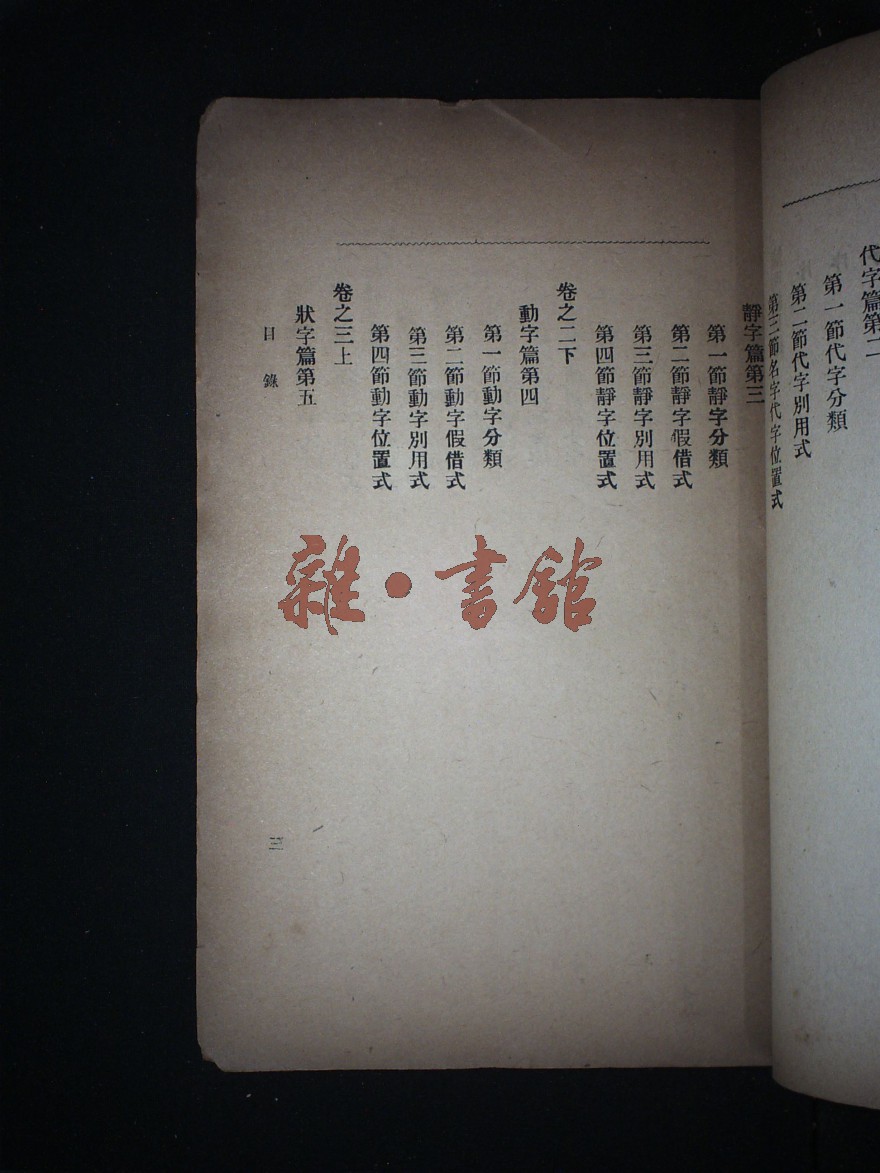 代字篇第二
第一節代字分類
第二節代字別用式
第三節名字代字位置式
靜字篇第三
第一節靜字分類
第二節靜字假借式
第三節靜字別用式
第四節靜字位置式
卷之二下
動字篇第四
第一節動字分類
第二節動字假借式
第三節動字別用式
第四節動字位置式
卷之三上
狀字篇第五
目錄
三
雜·書館